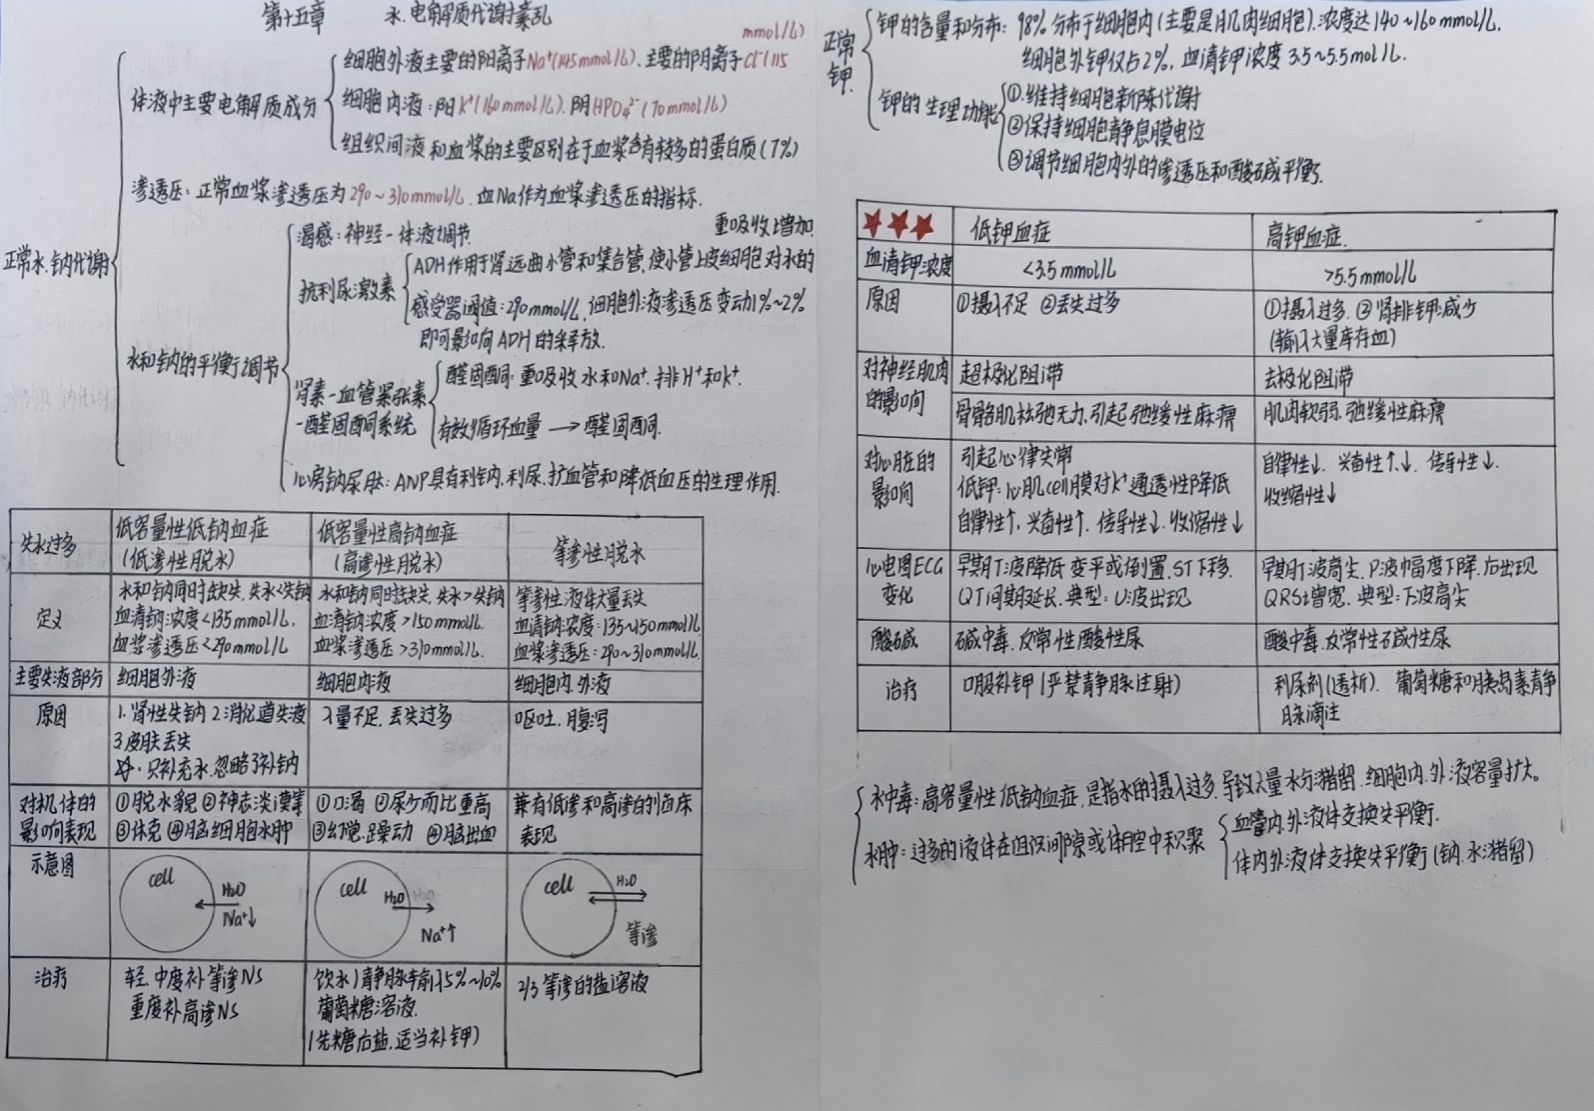 第十五章 水.电解质代谢紊乱
正常水.钠代谢
体液中主要电解质成分
细胞外液主要的阳离子Na⁺(145mmol/L).主要的阴离子Cl⁻(115mmol/L)
细胞内液:阳K⁺(160mmol/L).阴HPO₄²⁻(70mmol/L)
组织间液和血浆的主要区别在于血浆含有较多的蛋白质(7%)
渗透压:正常血浆渗透压为290~310mmol/L.血Na作为血浆渗透压的指标.
水和钠的平衡调节
渴感:神经-体液调节.
抗利尿激素
ADH作用于肾远曲小管和集合管,使小管上皮细胞对水的重吸收增加.
感受器阈值:290mmol/L,细胞外液渗透压变动1%~2%
即可影响ADH的释放.
肾素-血管紧张素
-醛固酮系统
醛固酮:重吸收水和Na⁺.排H⁺和K⁺.
有效循环血量→醛固酮.
心房钠尿肽:ANP具有利钠.利尿.扩血管和降低血压的生理作用.
失水过多 低容量性低钠血症 低容量性高钠血症 等渗性脱水
(低渗性脱水) (高渗性脱水)
定义 水和钠同时缺失,失水<失钠 水和钠同时缺失,失水>失钠 等渗性液体大量丢失
血清钠浓度<135mmol/L. 血清钠浓度>150mmol/L. 血清钠浓度:135~150mmol/L
血浆渗透压<290mmol/L 血浆渗透压>310mmol/L. 血浆渗透压:290~310mmol/L.
主要失液部分 细胞外液 细胞内液 细胞内.外液
原因 1.肾性失钠2.消化道失液 入量不足,丢失过多 呕吐.腹泻
3.皮肤丢失
☆.只补充水.忽略了补钠
对机体的 ①脱水貌②神志淡漠等 ①口渴 ②尿少而比重高 兼有低渗和高渗的临床
影响向表现 ③休克④脑细胞水肿 ③幻觉.躁动 ④脑出血 表现
示意图 cell H₂O Na⁺↓ cell H₂O H₂O Na⁺↑ cell H₂O 等渗
治疗 轻.中度补等渗NS 饮水/静脉输入5%~10% 2/3等渗的盐溶液
重度补高渗NS 葡萄糖溶液.
(先糖后盐.适当补钾)
正常钾.
钾的含量和分布:98%分布于细胞内(主要是肌肉细胞).浓度达140~160mmol/L.
细胞外钾仅占2%,血清钾浓度3.5~5.5mol/L.
钾的生理功能
①.维持细胞新陈代谢
②保持细胞静息膜电位
③调节细胞内外的渗透压和酸碱平衡.
★★★ 低钾血症 高钾血症.
血清钾浓度 <3.5mmol/L >5.5mmol/L
原因 ①摄入不足 ②丢失过多 ①摄入过多.②肾排钾减少
(输入大量库存血)
对神经肌肉 超极化阻滞 去极化阻滞
的影响向 骨骼肌松弛无力.引起弛缓性麻痹 肌肉软弱.弛缓性麻痹
对心脏的 引起心律失常 自律性↓.兴奋性↑.↓.传导性↓.
影响向 低钾:心肌cell膜对K⁺通透性降低 收缩性↓
自律性↑.兴奋性↑.传导性↓.收缩性↓
心电图ECG 早期T波降低 变平或倒置.ST下移. 早期T波高尖.P波幅度下降.后出现
变化 QT间期延长.典型:U波出现 QRS增宽.典型:T波高尖
酸碱 碱中毒.反常性酸性尿 酸中毒.反常性碱性尿
治疗 口服补钾(严禁静脉注射) 利尿剂(透析).葡萄糖和胰岛素静
脉滴注
水中毒:高容量性低钠血症.是指水的摄入过多.导致大量水分潴留.细胞内.外液容量扩大。
水肿:过多的液体在组织间隙或体腔中积聚
血管内.外液体交换失平衡.
体内外液体交换失平衡(钠.水潴留)